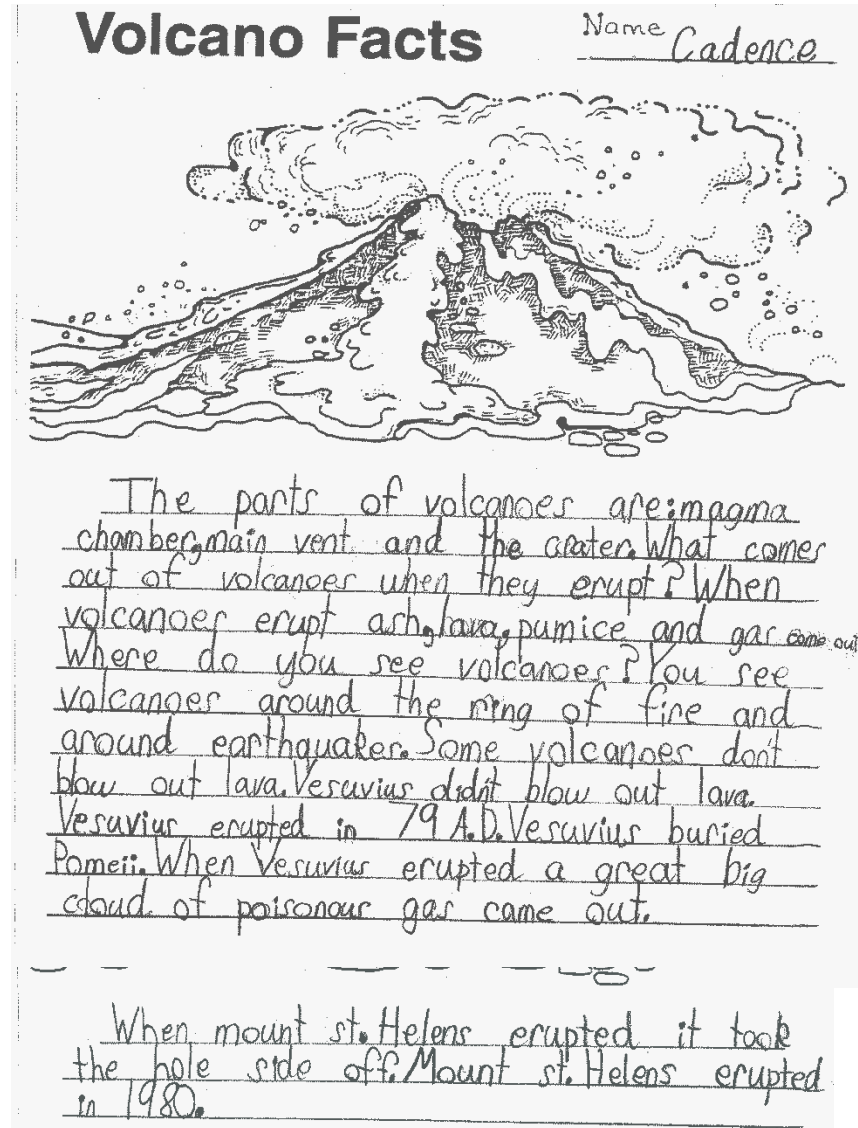 Volcano Facts
Name Cadence
The parts of volcanoes are:magma
chamber,main vent and the crater.What comes
out of volcanoes when they erupt? When
volcanoes erupt ash,lava,pumice and gas come out
Where do you see volcanoes? You see
volcanoes around the ring of fire and
around earthquakes. Some volcanoes don't
blow out lava.Vesuvius didn't blow out lava.
Vesuvius erupted in 79 A.D.Vesuvius buried
Pomeii.When Vesuvius erupted a great big
cloud of poisonous gas came out.
When mount st.Helens erupted it took
the hole side off.Mount st.Helens erupted
in 1980.